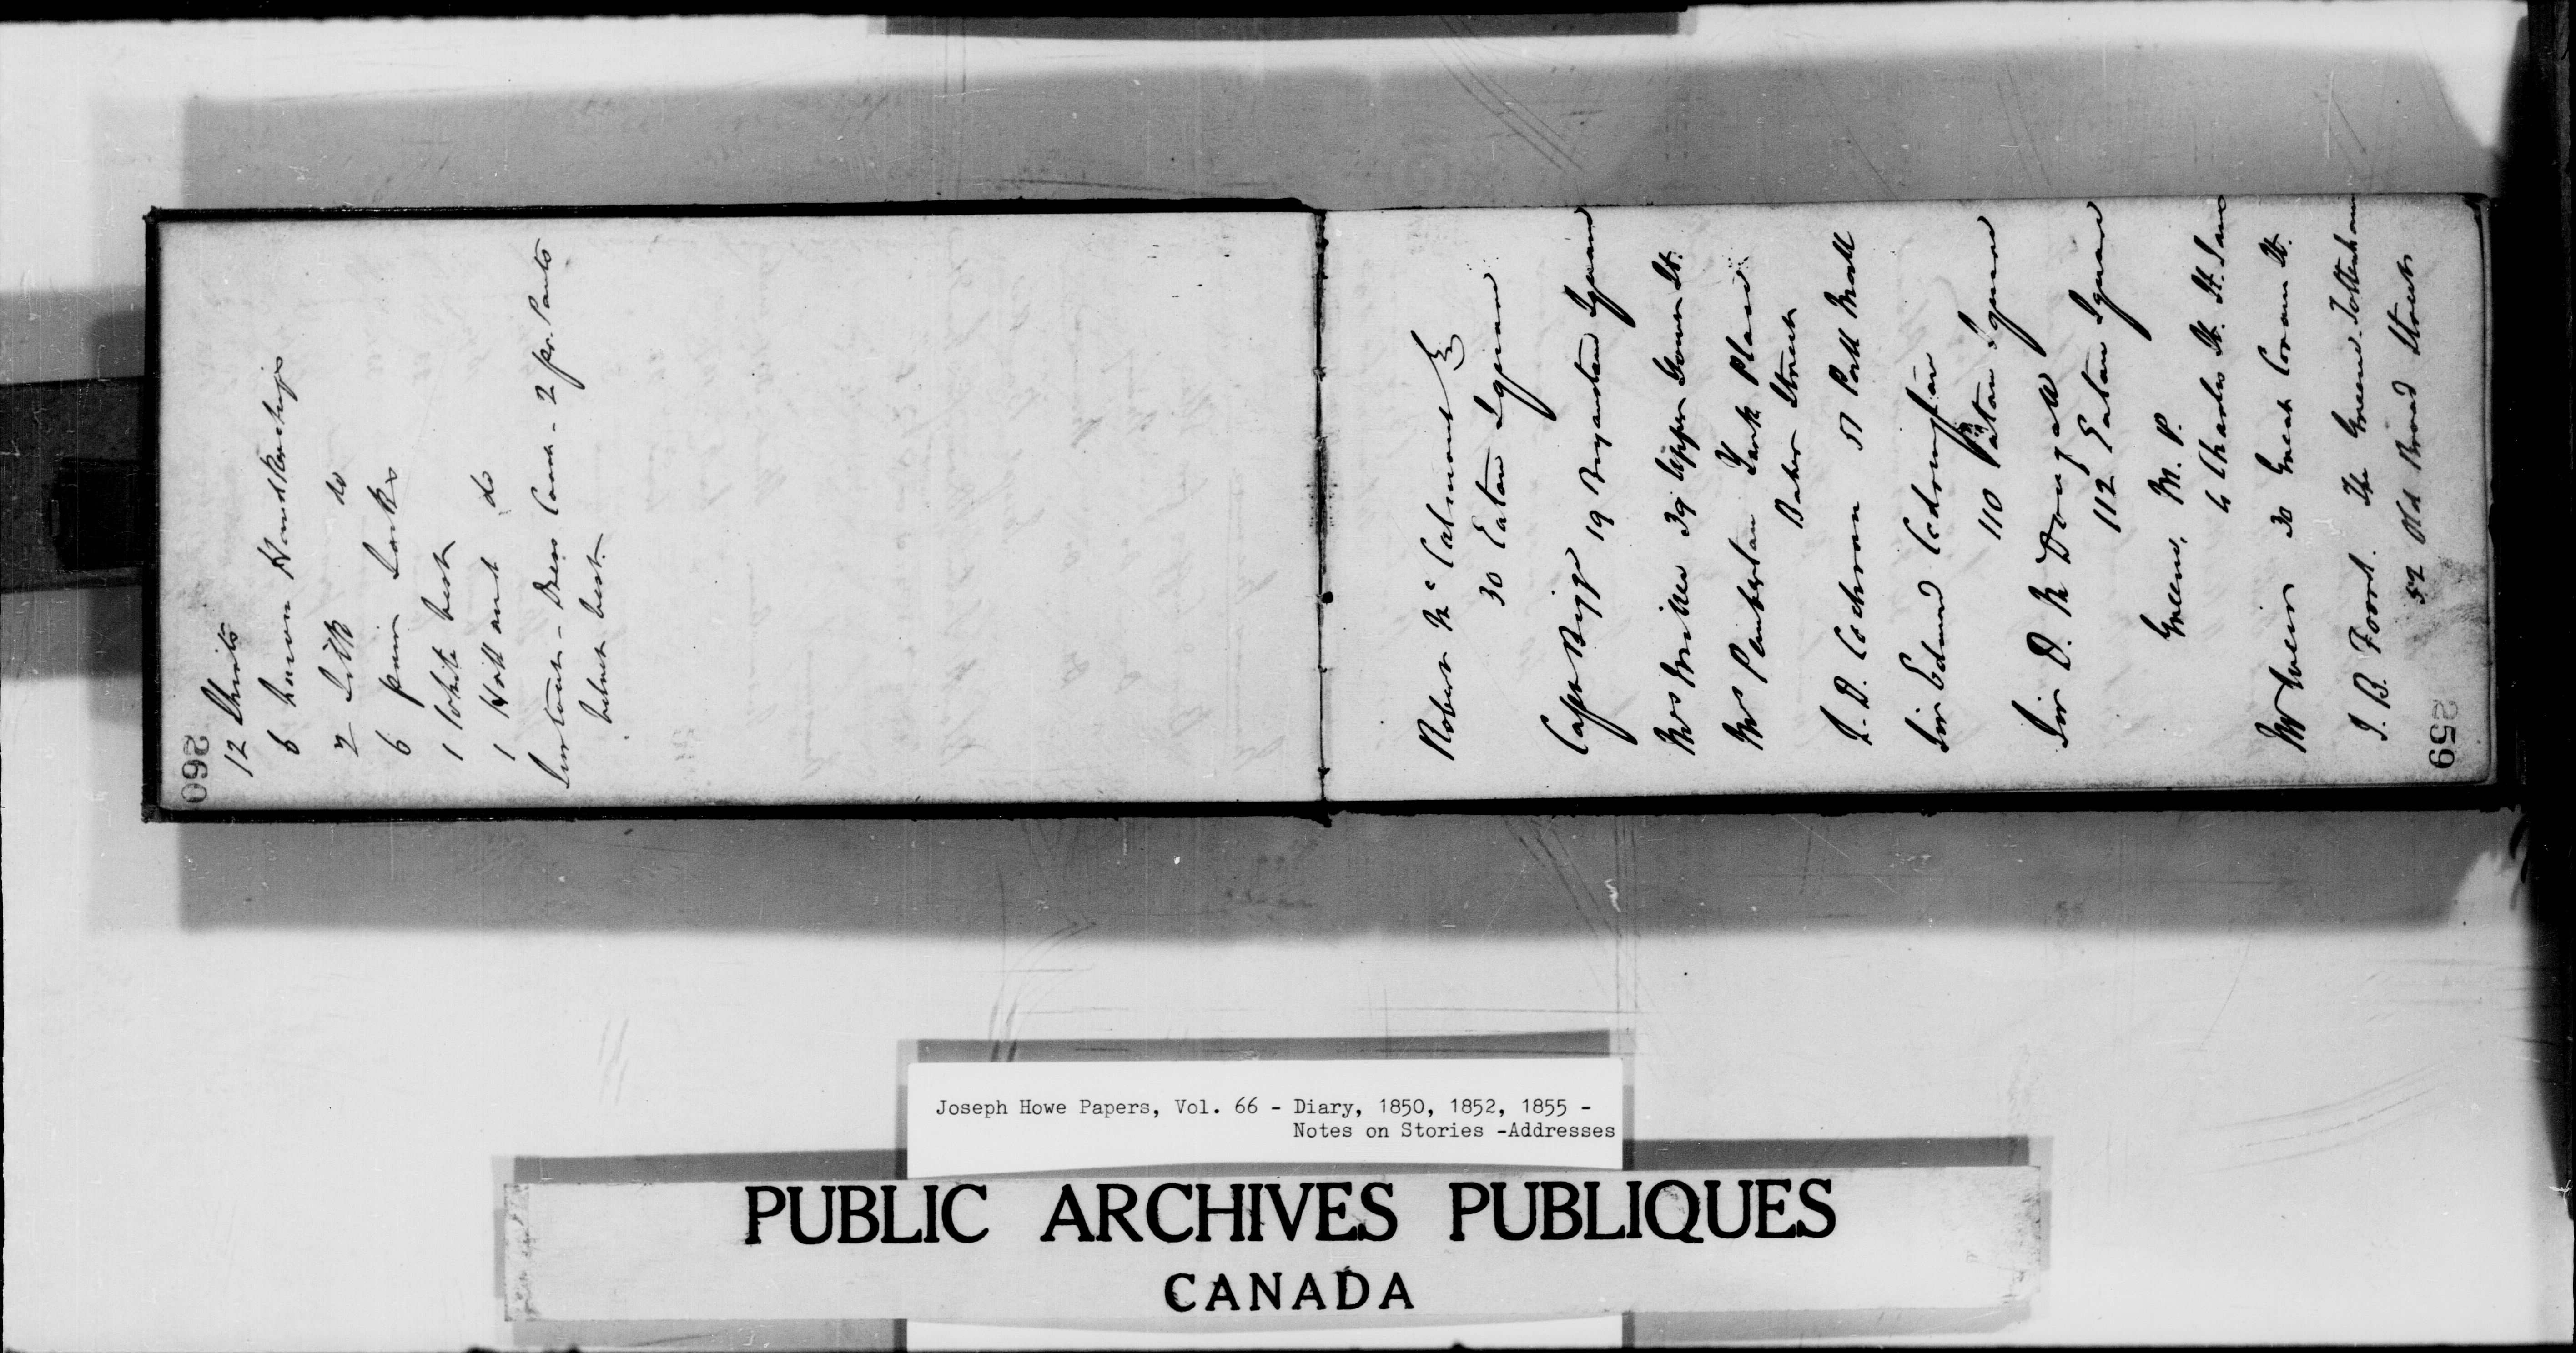 260
12 Shirts
6 linen Handkerchiefs
2 Silk do
6 pair Socks
1 White Vest
1 Holl and do
Surtout - Dress Coat - 2 pr. Pants
Velvet Vest.
Robert McCalmont Esq
30 Eaton Square
Capt Bigge
19 Bryanston Square
Mrs Miller 39 Upper Gower St.
Mrs Pemberton York Place
Baker Street
J. D. Cochran 51 Pall Mall
Sir Edmund Codrington
110 Eaton Square
Sir D. McDougall
112 Eaton Square
Greene, M. P.
6 Charles St. St. James
Mr Weir 30 Great Coram St.
J. B. Foord. The Greene Tottenham
52 Old Broad Street
259
Joseph Howe Papers, Vol. 66 - Diary, 1850, 1852, 1855 -
Notes on Stories -Addresses
PUBLIC ARCHIVES PUBLIQUES
CANADA